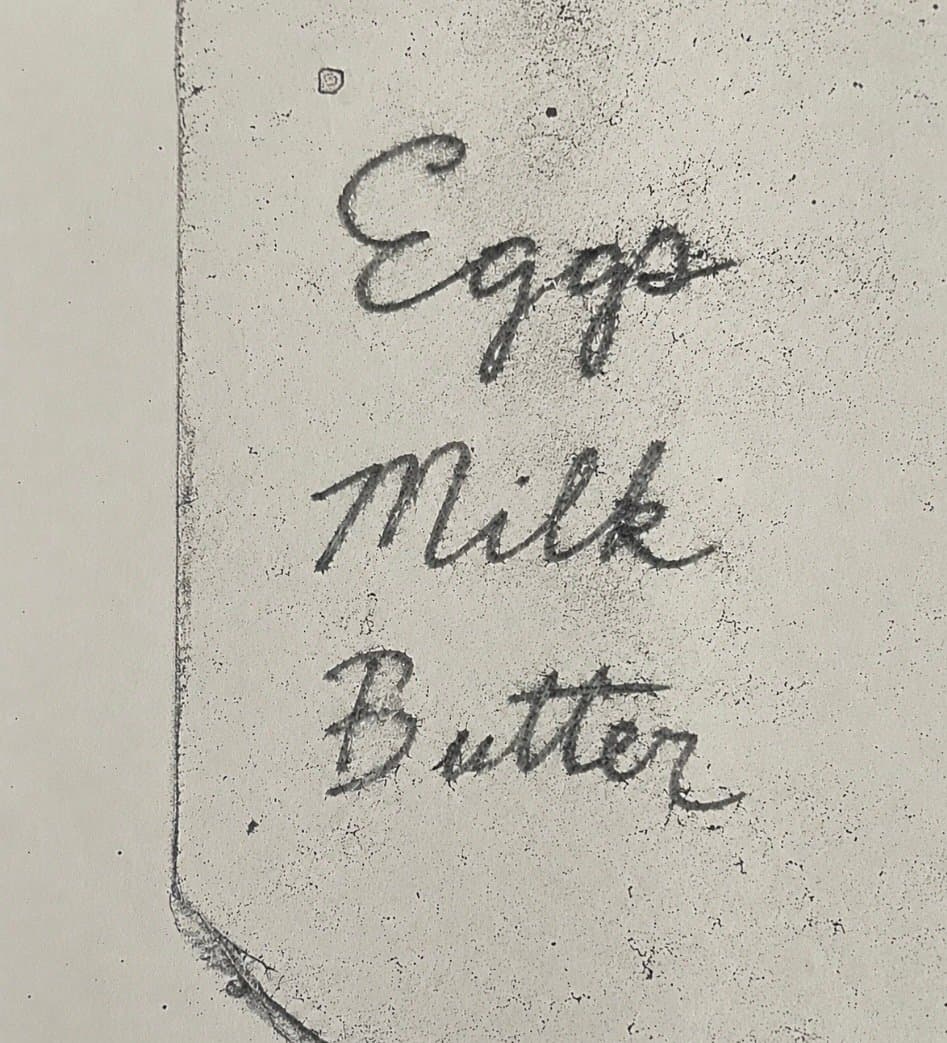 Eggs
Milk
Butter